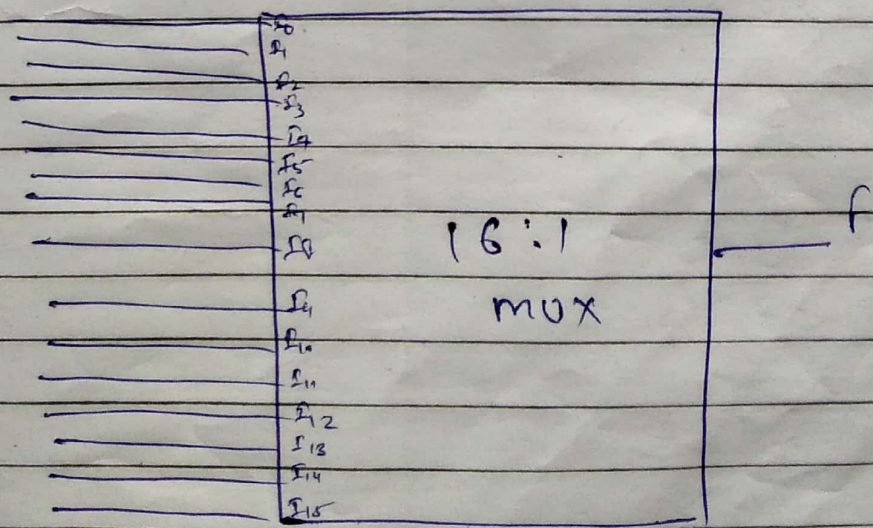 I0
I1
I2
I3
I4
I5
I6
I7
I8
I9
I10
I11
I12
I13
I14
I15
16:1
mux
f